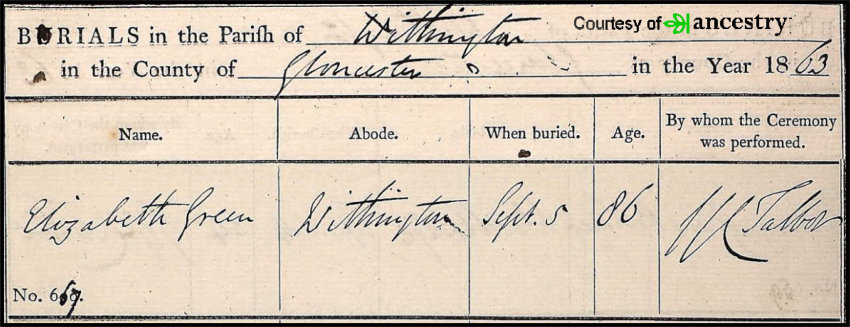 Courtesy of ancestry
BURIALS in the Pariſh of Withington
in the County of Gloucester in the Year 1863
Name. Abode. When buried. Age. By whom the Ceremony
was performed.
Elizabeth Green Withington Sept. 5 86 Talbot
No. 667.